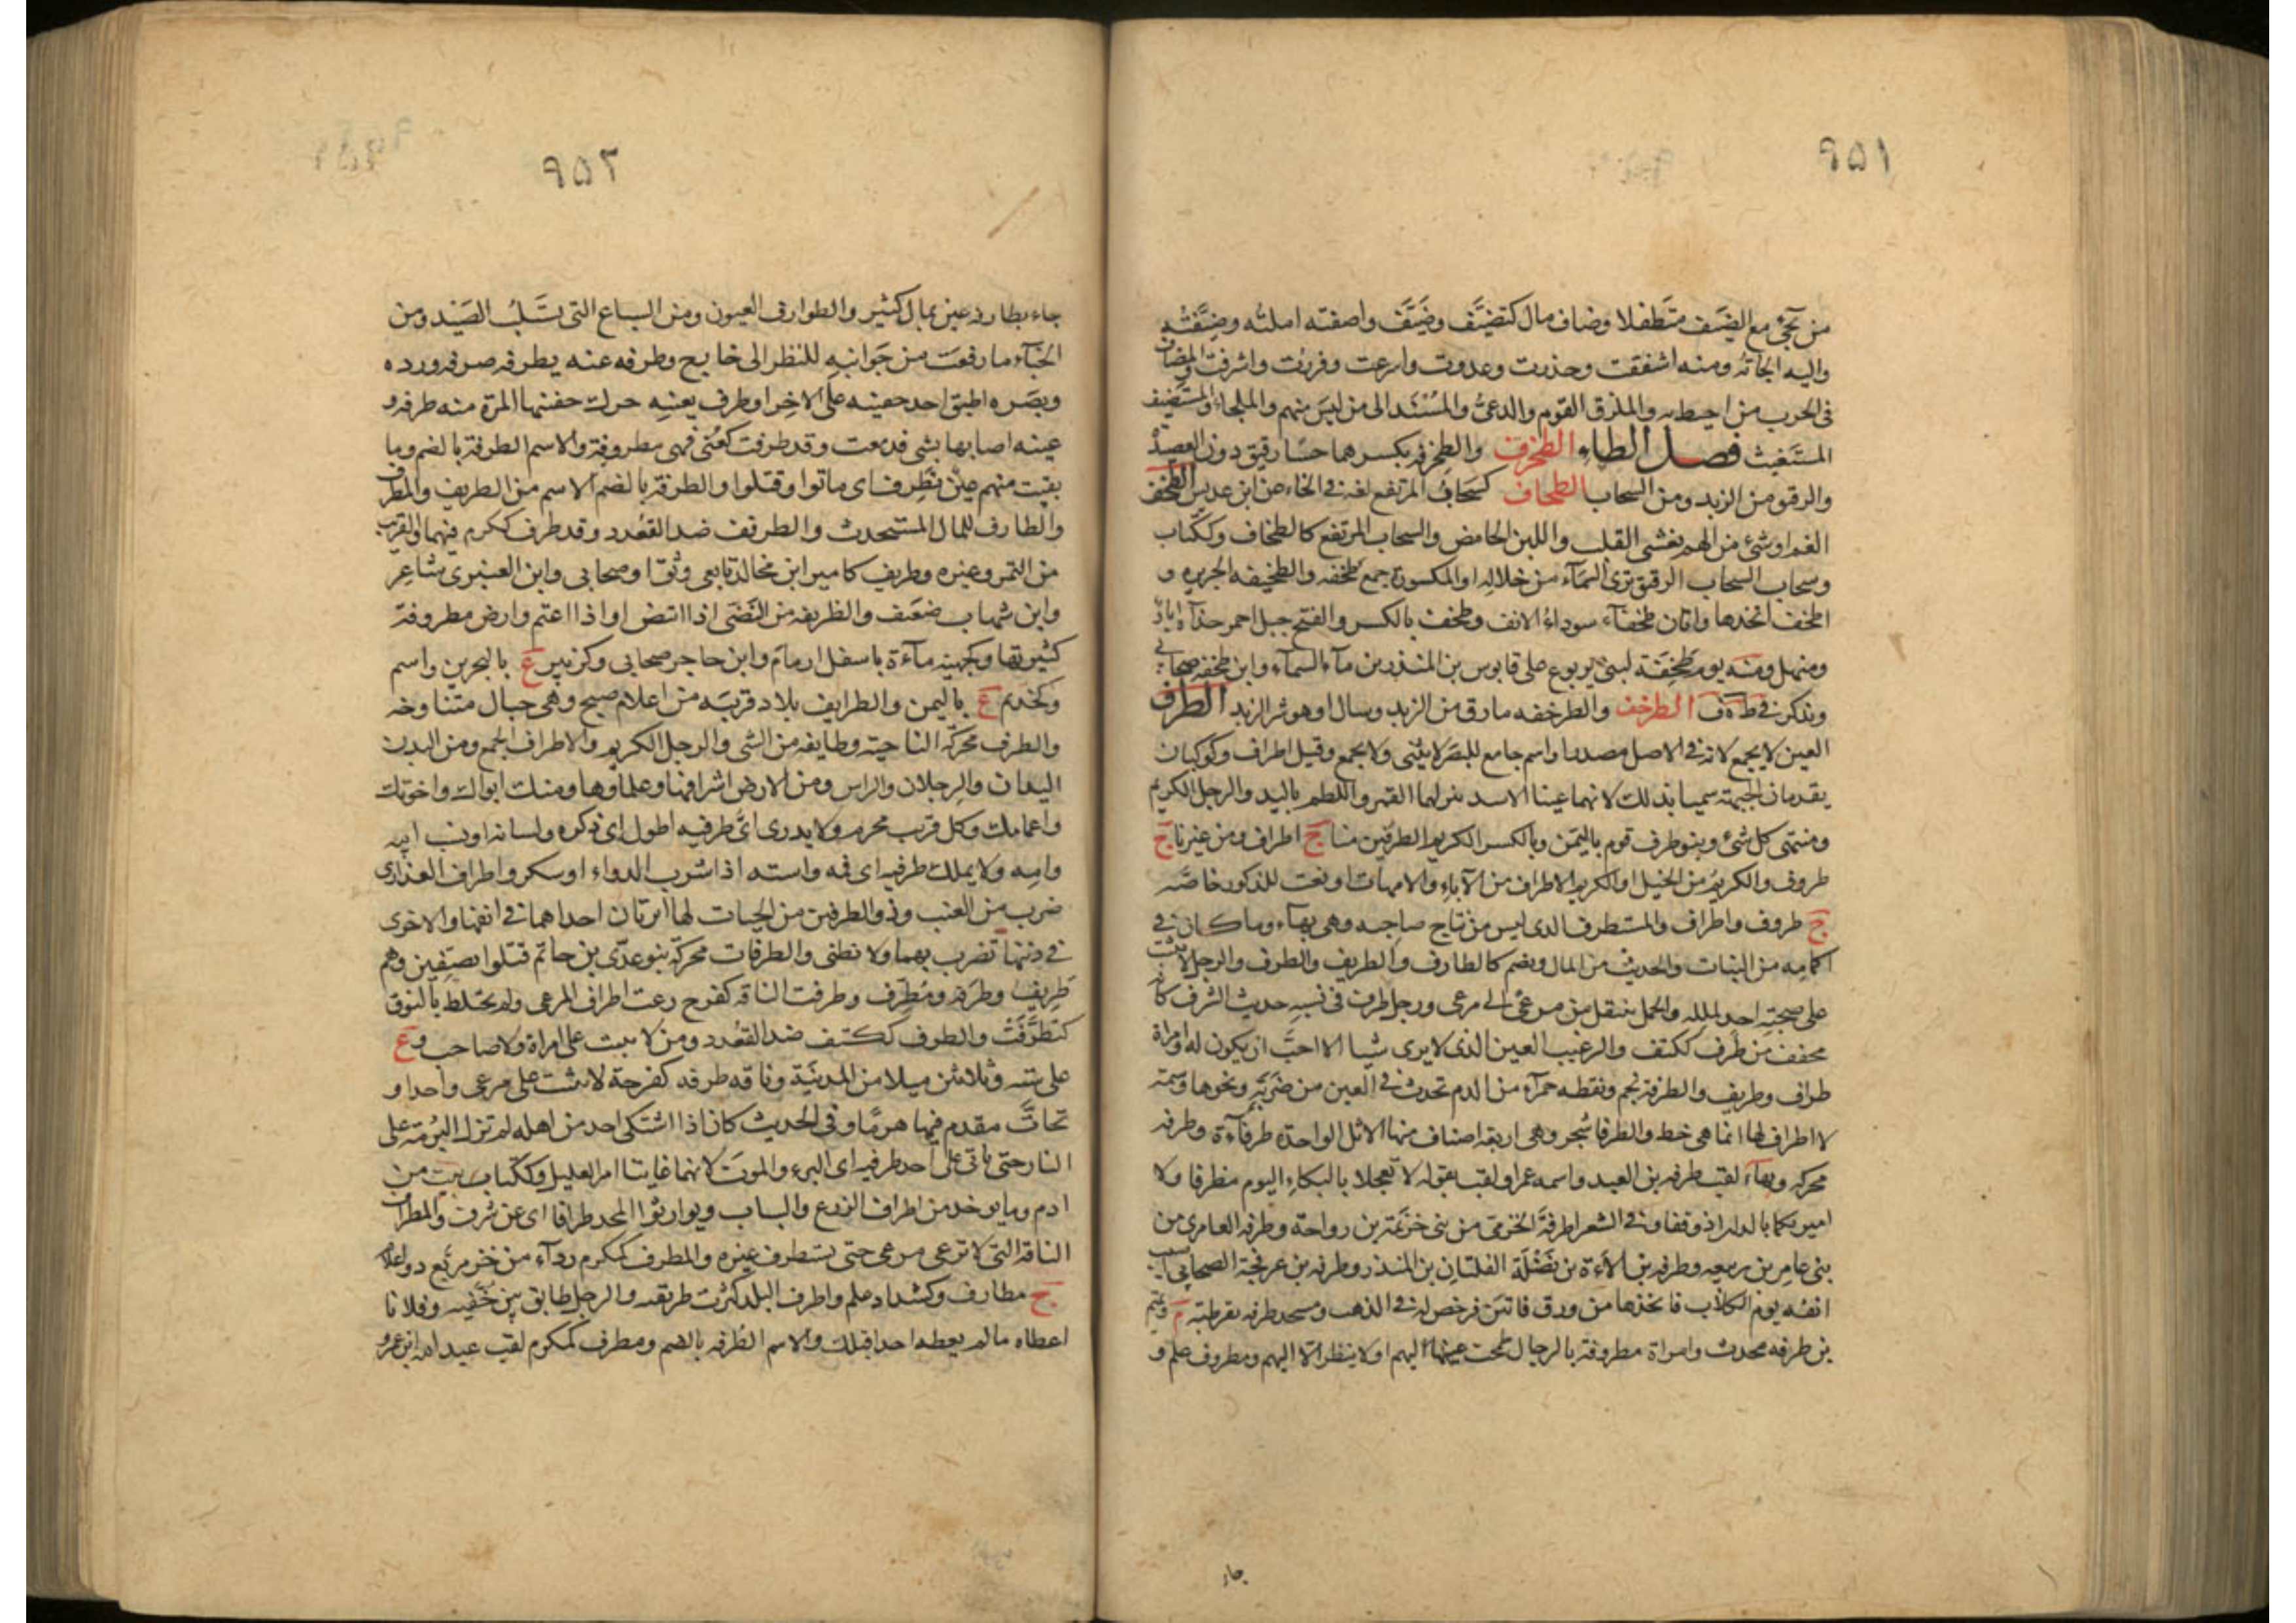 ٩٥١
من يجئ مع الضيف متطفلا وضاف مال كتضيف وضيف واضفته املته وضيفته
واليه الجاته ومنه اشفقت وحذرت وعدوت واسرعت وفررت واشرفت والمضاف
فى الحرب من احيط به والملزق القوم والدعى والمسند الى من ليس منهم والملجاء والمستضيف
المستغيث فصل الطاء الطخرف والطخرفه بكسرهما حسا رقيق دون العصيدة
والرقو من الزبد ومن السحاب الطحاف كسحاب المرتفع لغه فى الخاء عن ابن عديس الطخف
الغم او شئ من الهم يغشى القلب واللبن الحامض والسحاب المرتفع كالطخاف وككتاب
وسحاب السحاب الرقيق ترى السماء من خلاله او المكسورة جمع طخفه والطخيفه الخزيره و
اطخف اتخذها واتان طخفاء سوداء الانف وطخف بالكسر والفتح جبل احمر حذاه اباد
ومنهل ومنه يوم طخفة لبنى يربوع على قابوس بن المنذر بن ماء السماء وابن طخفه صحابى
ويذكر فى ط ه ف الطرخف والطرخفه مارق من الزبد وسال او هو شر الزبد الطرف
العين لا يجمع لانه فى الاصل مصدر او اسم جامع للبصر لا يثنى ولا يجمع وقيل اطراف وكوكبان
يقدمان الجبهة سميا بذلك لانهما عينا الاسد ينزلهما القمر واللطم باليد والرجل الكريم
ومنتهى كل شئ وبنو طرف قوم باليمن وبالكسر الكريم الطرفين منا ج اطراف ومن غيرنا ج
طروف والكريم من الخيل او الكريم الاطراف من الآباء والامهات او نعت للذكور خاصه
ج طروف واطراف والمستطرف الذى ليس من نتاج صاحبه وهى بهاء وما كان فى
اكمامه من النبات والحديث من المال ويضم كالطارف والطريف والطرف والرجل لا يثبت
على صحبته احد لملله والجمل ينتقل من مرعى الى مرعى ورجل طرف فى نسبه حديث الشرف كانه
مخفف من طرف ككتف والرغيب العين الذى لا يرى شيا الا احب ان يكون له وامراة
طراف وطريف والطرفة نجم ونقطه حمراء من الدم تحدث فى العين من ضربه ونحوها وسمة
لا اطراف لها انما هى خط والطرفا شجر وهى اربعه اصناف منها الاثل الواحدة طرفاءة وطرفه
محركه وبهاء لقب طرفه بن العبد واسمه عمرو لقب بقوله لا تعجلا بالبكاء اليوم مطرفا ولا
اميريكما بالدار اذ وقفا وفى الشعراء طرفة الخزمى من بنى خزيمة بن رواحة وطرفه العامرى من
بنى عامر بن ربيعه وطرفه بن الاءة بن نضلة الفلتان بن المنذر وطرفه بن عرفجة الصحابى اصيب
انفه يوم الكلاب فاتخذها من ورق فانتن فرخص له فى الذهب ومسجد طرفه بقرطبة م وتميم
بن طرفه محدث وامراة مطروفة بالرجال طمحت عينها اليهم او لا ينظر الا اليهم ومطروف علم و
جاء
٩٥٢
جاء بطارفه عين بمال كثير والطوارف العيون ومن السباع التى تسلب الصيد ومن
الخباء ما رفعت من جوانبه للنظر الى خارج وطرفه عنه يطرفه صرفه ورده
وبصره اطبق احد جفنيه على الاخر او طرف بعينه حرك جفنيها المرة منه طرفه و
عينه اصابها بشى فدمعت وقد طرفت كعنى فهى مطروفة والاسم الطرفة بالضم وما
بقيت منهم عين تطرف اى ماتوا وقتلوا والطرفة بالضم الاسم من الطريف والمطرف
والطارف للمال المستحدث والطريف ضد القعدد وقد طرف ككرم فيهما والغريب
من الثمر وغيره وطريف كامير ابن مخالد تابعى وثقا وصحابى وابن العنبرى شاعر
وابن شهاب ضعيف والطريفه من النصى اذا ابيض او اذا اعتم وارض مطروفة
كثيرتها وكجهينه ماءة باسفل ارمام وابن حاجر صحابى وكزبير ع بالبحرين واسم
وكخديم ع باليمن والطرايف بلاد قريبه من اعلام صبح وهى جبال متناوخه
والطرف محركه الناحيته وطايفه من الشى والرجل الكريم والاطراف الجمع ومن البدن
اليدان والرجلان والراس ومن الارض اشرافها وعلماوها ومنك ابواك واخوتك
واعمامك وكل قريب محرم ولا يدرى اى طرفيه اطول اى ذكره ولسانه او نسب ابيه
وامه ولا يملك طرفيه اى فمه واسته اذا شرب الدواء او سكر واطراف العذارى
ضرب من العنب وذو الطرفين من الحيات لها ابرتان احداهما فى انفها والاخرى
فى ذنبها تضرب بهما ولا تطنى والطرفات محركة بنو عدى بن حاتم قتلوا بصفين وهم
طريف وطرفه ومطرف وطرفت الناقه كفرح رعت اطراف المرعى ولم تختلط بالنوق
كتطرفت والطرف ككتف ضد القعدد ومن لا يثبت على امراة ولا صاحب وع
على ستة وثلاثين ميلا من المدينة وناقه طرفه كفرحة لا تثبت على مرعى واحد او
تحات مقدم فيها هرما وفى الحديث كان اذا اشتكى احد من اهله لم تزل البرمة على
النار حتى ياتى على احد طرفيه اى البرء والموت لانهما غايتا امر العليل وككتاب بيت من
ادم وما يوخذ من اطراف الزرع والسباب وتوارثوا المجد طرافا اى عن شرف والمطراف
الناقه التى لا ترعى مرعى حتى تستطرف غيره والمطرف كمكرم رداء من خز مربع ذو اعلام
ج مطارف وكشداد علم واطرف البلد كثرت طريفه والرجل طابق بين جفنيه وفلانا
اعطاه ما لم يعطه احد قبلك والاسم الطرفه بالضم ومطرف كمكرم لقب عبد الله ابن عمرو